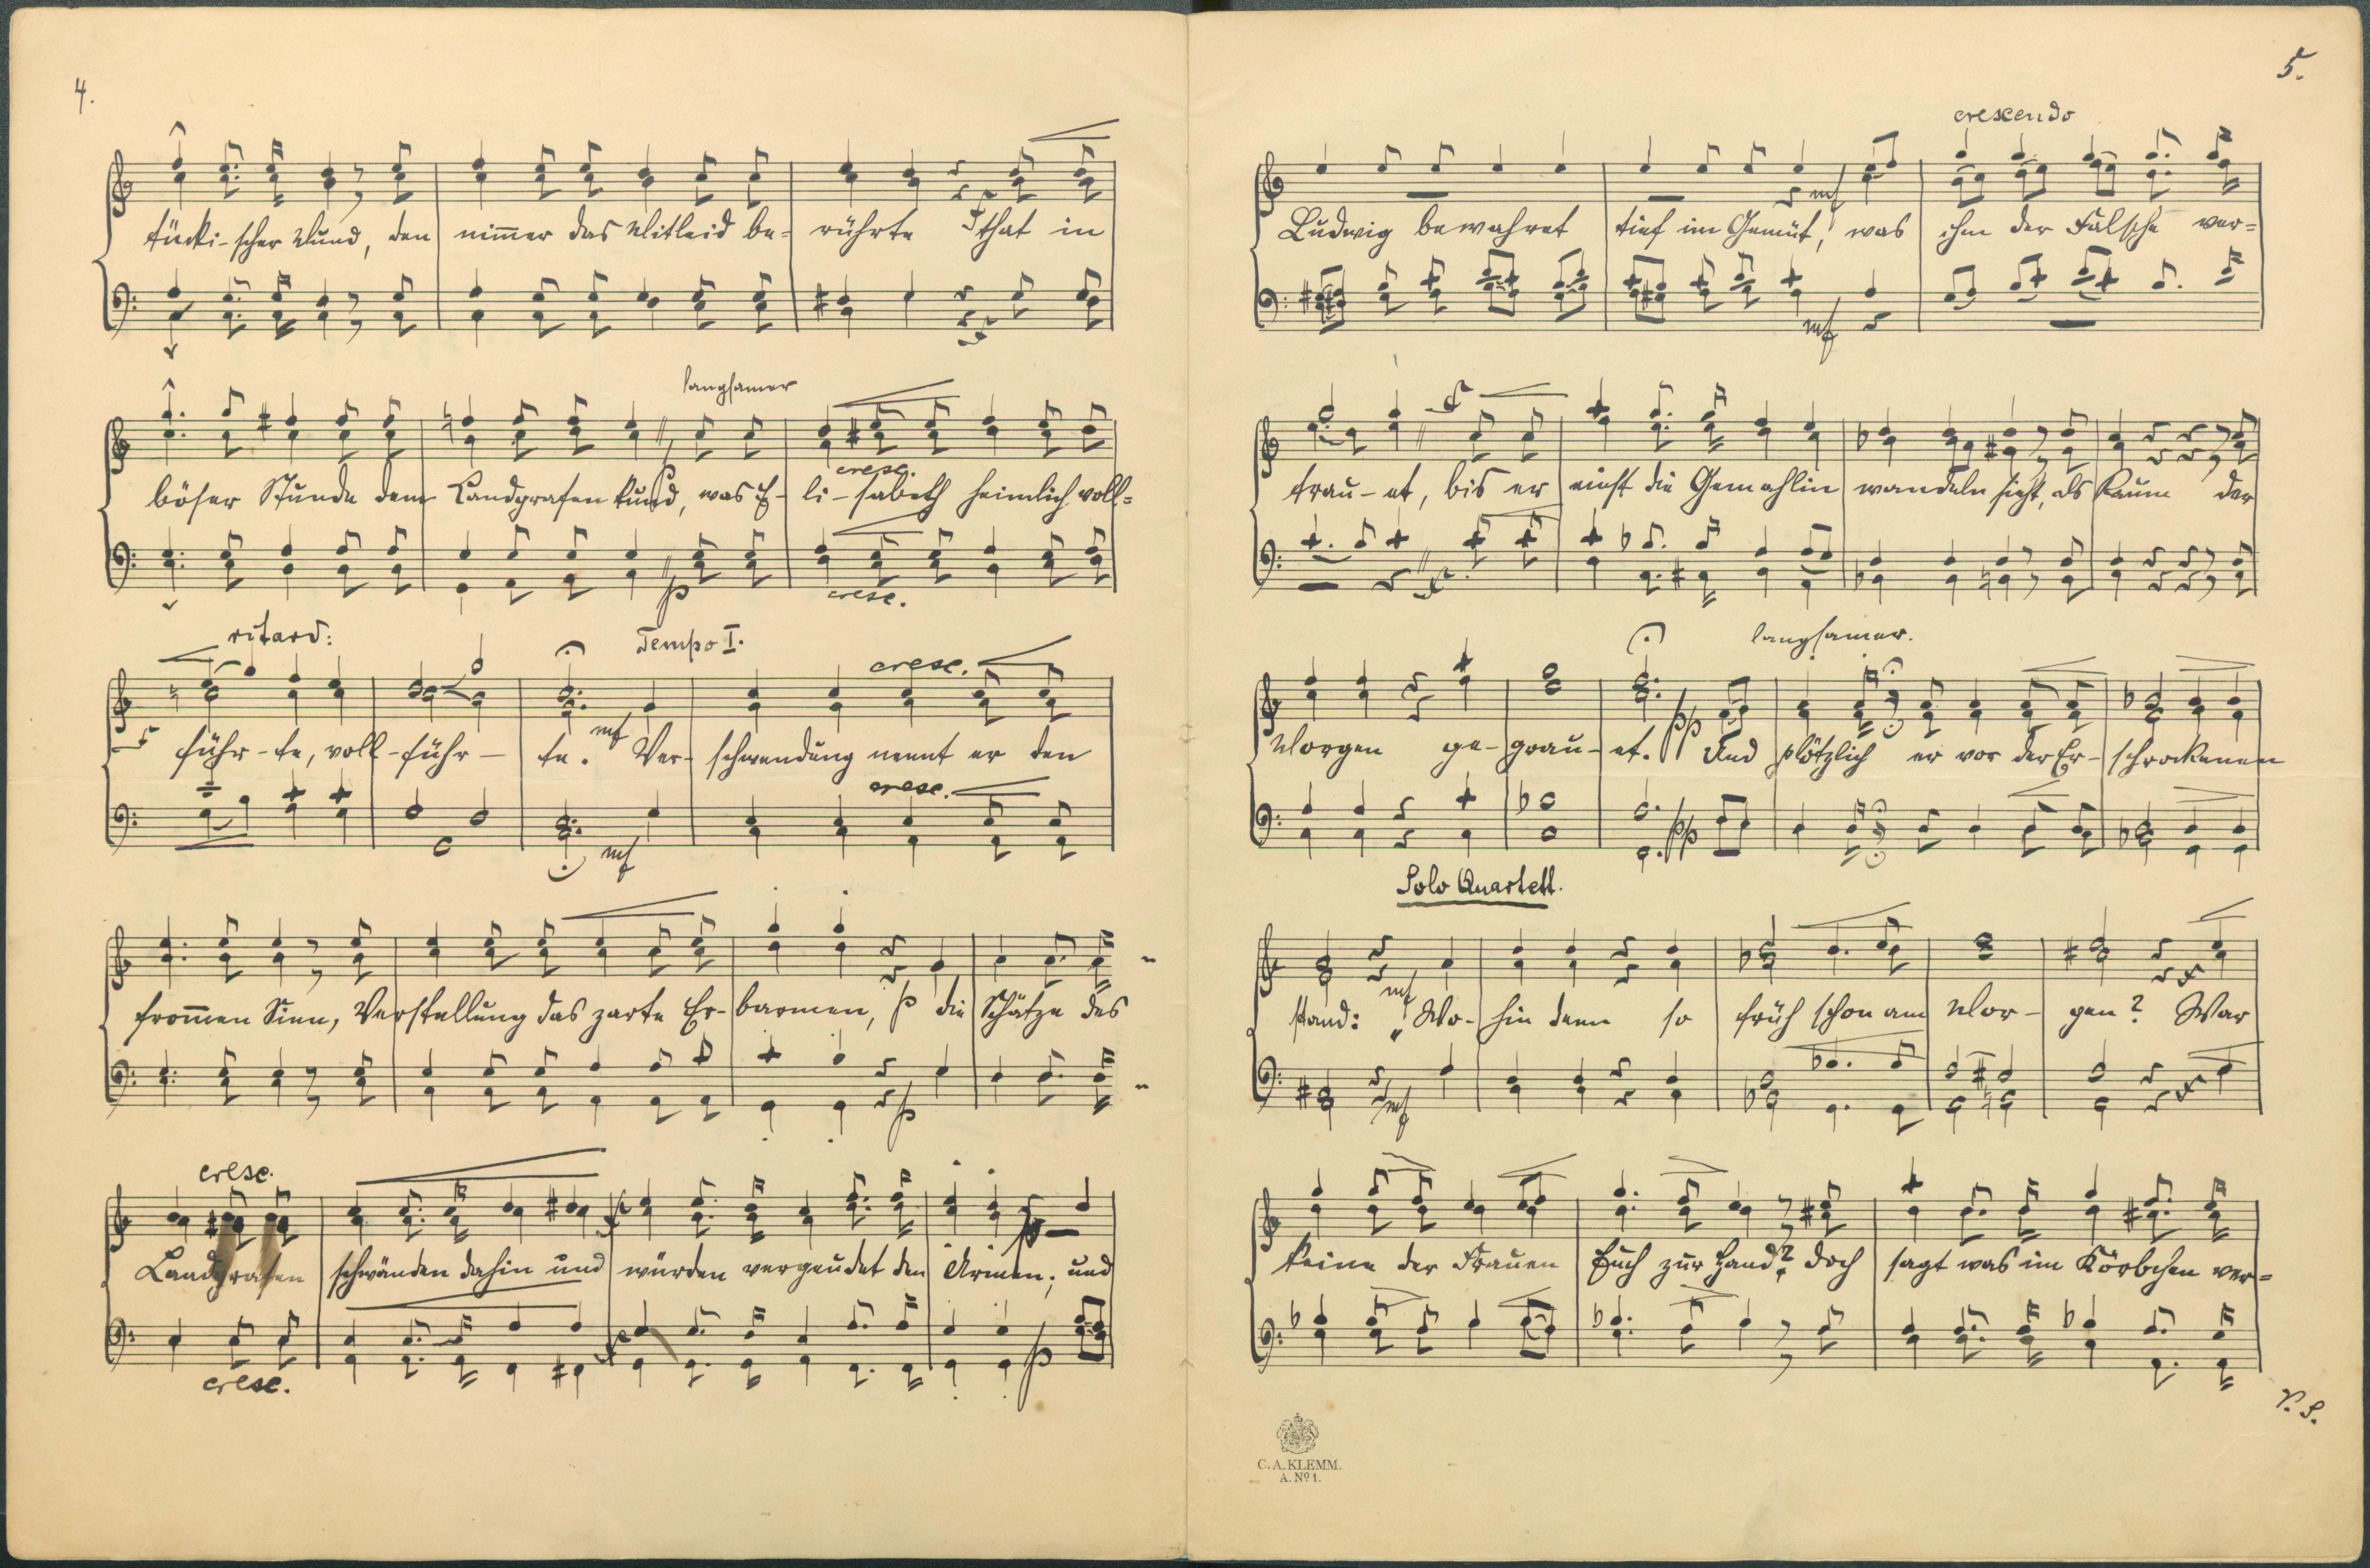 4.
tücki-scher Mund, den nimmer das Mitleid be= rührte that in
langsamer
böser Stunde dem Landgrafen kund, was E- li-sabeth heimlich voll=
cresc.
p
cresc.
ritard:
Tempo I.
cresc.
führ-te, voll-führ- te. mf Ver- schwendung nennt er den
cresc.
mf
frommen Sinn, Verstellung das zarte Er- barmen, p die Schätze des
p
cresc.
Landgrafen schwänden dahin und würden vergeudet den Armen; und
p
cresc.
5.
crescendo
mf
Ludwig bewahret tief im Gemüt, was ihm der Falsche ver=
mf
trau-et, bis er einst die Gemahlin wandeln sieht, als kaum der
langsamer.
Morgen ge-grau-et. pp Und plötzlich er vor der Er- schrockenen
pp
Solo Quartett.
mf
stand: „Wo- hin denn so früh schon am Mor- gen? War
mf
keine der Frauen Euch zur Hand? doch sagt was im Körbchen ver=
V. S.
C. A. KLEMM.
A. Nº 1.